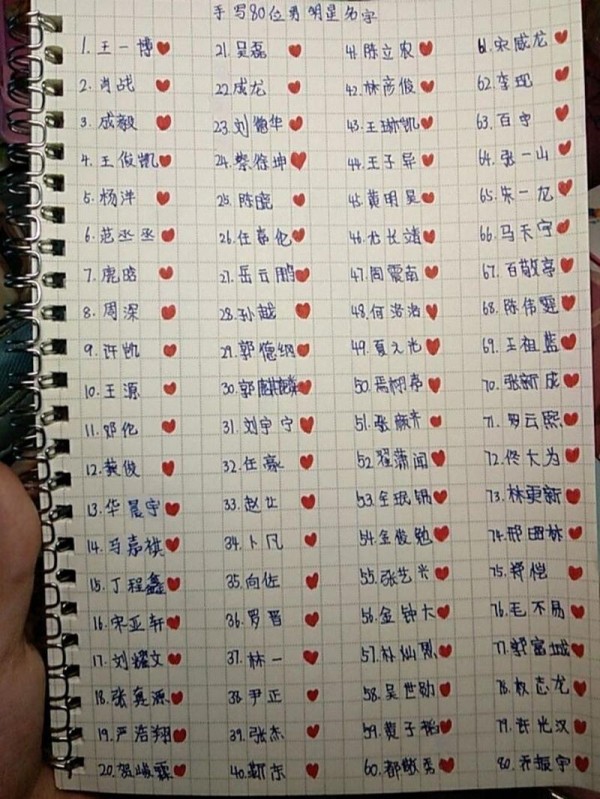 手写80位男明星名字
1.王一博
2.肖战
3.成毅
4.王俊凯
5.杨洋
6.范丞丞
7.鹿晗
8.周深
9.许凯
10.王源
11.邓伦
12.黄俊
13.华晨宇
14.马嘉祺
15.丁程鑫
16.宋亚轩
17.刘耀文
18.张真源
19.严浩翔
20.贺峻霖
21.吴磊
22.成龙
23.刘德华
24.蔡徐坤
25.陈晓
26.任嘉伦
27.岳云鹏
28.孙越
29.郭德纲
30.郭麒麟
31.刘宇宁
32.任豪
33.赵让
34.卜凡
35.向佐
36.罗晋
37.林一
38.尹正
39.张杰
40.靳东
41.陈立农
42.林彦俊
43.王琳凯
44.王子异
45.黄明昊
46.尤长靖
47.周震南
48.何洛洛
49.夏之光
50.焉栩嘉
51.张颜齐
52.翟潇闻
53.金珉锡
54.金俊勉
55.张艺兴
56.金钟大
57.朴灿烈
58.吴世勋
59.黄子韬
60.都敬秀
61.宋威龙
62.李现
63.百宇
64.张一山
65.朱一龙
66.马天宇
67.百敬亭
68.陈伟霆
69.王祖蓝
70.张新成
71.罗云熙
72.佟大为
73.林更新
74.邢昭林
75.郑恺
76.毛不易
77.郭富城
78.权志龙
79.许光汉
80.乔振宇